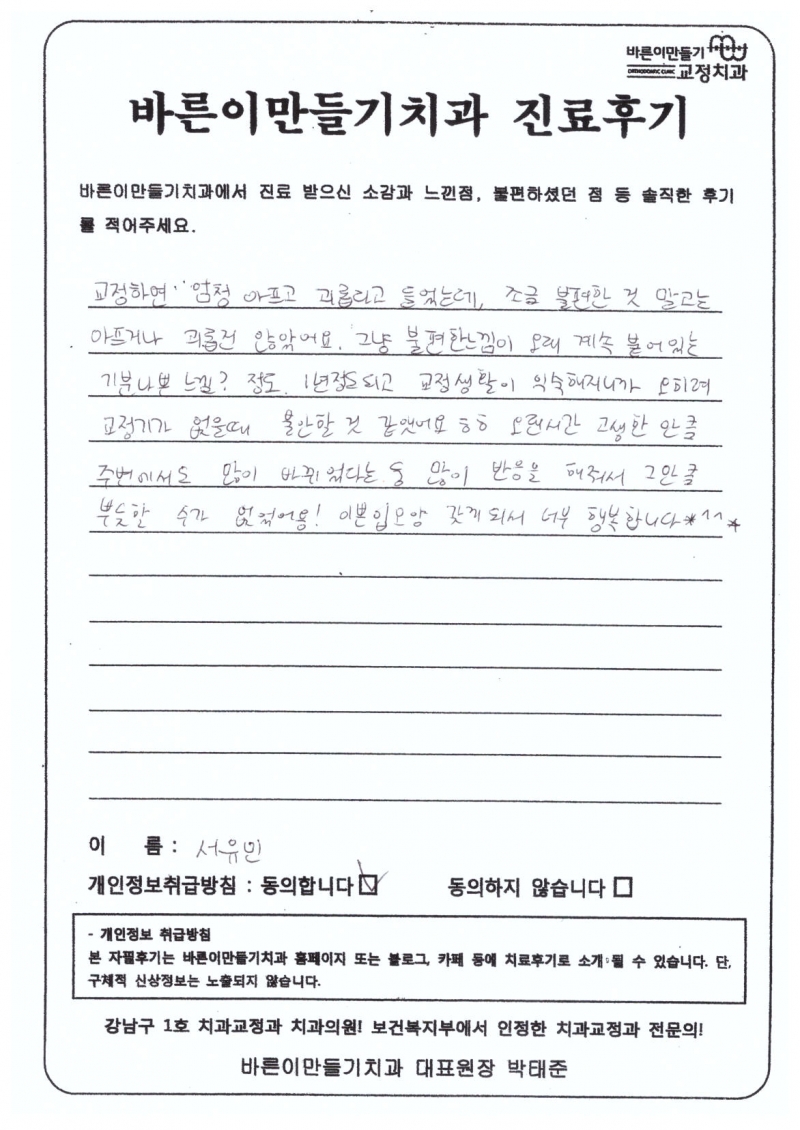 바른이만들기
ORTHODONTIC CLINIC 교정치과
바른이만들기치과 진료후기
바른이만들기치과에서 진료 받으신 소감과 느낀점, 불편하셨던 점 등 솔직한 후기
를 적어주세요.
교정하면 엄청 아프고 괴롭다고 들었는데, 조금 불편한 것 말고는
아프거나 괴롭진 않았어요. 그냥 불편한느낌이 오래 계속 붙어있는
기분나쁜 느낌? 정도. 1년정도되고 교정생활이 익숙해지니까 오히려
교정기가 없을때 불안할 것 같앴어요 ㅎㅎ 오랜시간 고생한 만큼
주변에서도 많이 바뀌었다는 등 많이 반응을 해줘서 그만큼
뿌듯할 수가 없었어용! 이쁜입모양 갖게되서 너무 행복합니다*^^*
이 름 : 서유민
개인정보취급방침 : 동의합니다 동의하지 않습니다
- 개인정보 취급방침
본 자필후기는 바른이만들기치과 홈페이지 또는 블로그, 카페 등에 치료후기로 소개 될 수 있습니다. 단,
구체적 신상정보는 노출되지 않습니다.
강남구 1호 치과교정과 치과의원! 보건복지부에서 인정한 치과교정과 전문의!
바른이만들기치과 대표원장 박태준